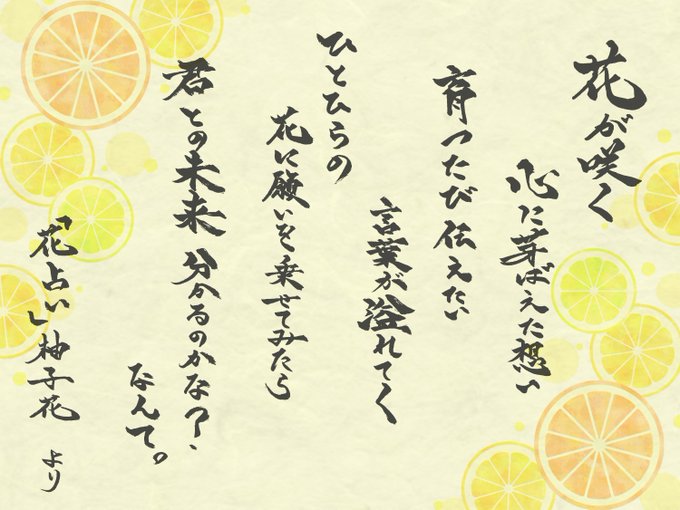 花が咲く
心に芽ばえた想い
育つたび伝えたい
言葉が溢れてく
ひとひらの
花に願いを乗せてみたら
君との未来 分かるのかな?
なんて。
「花占い」柚子花 より